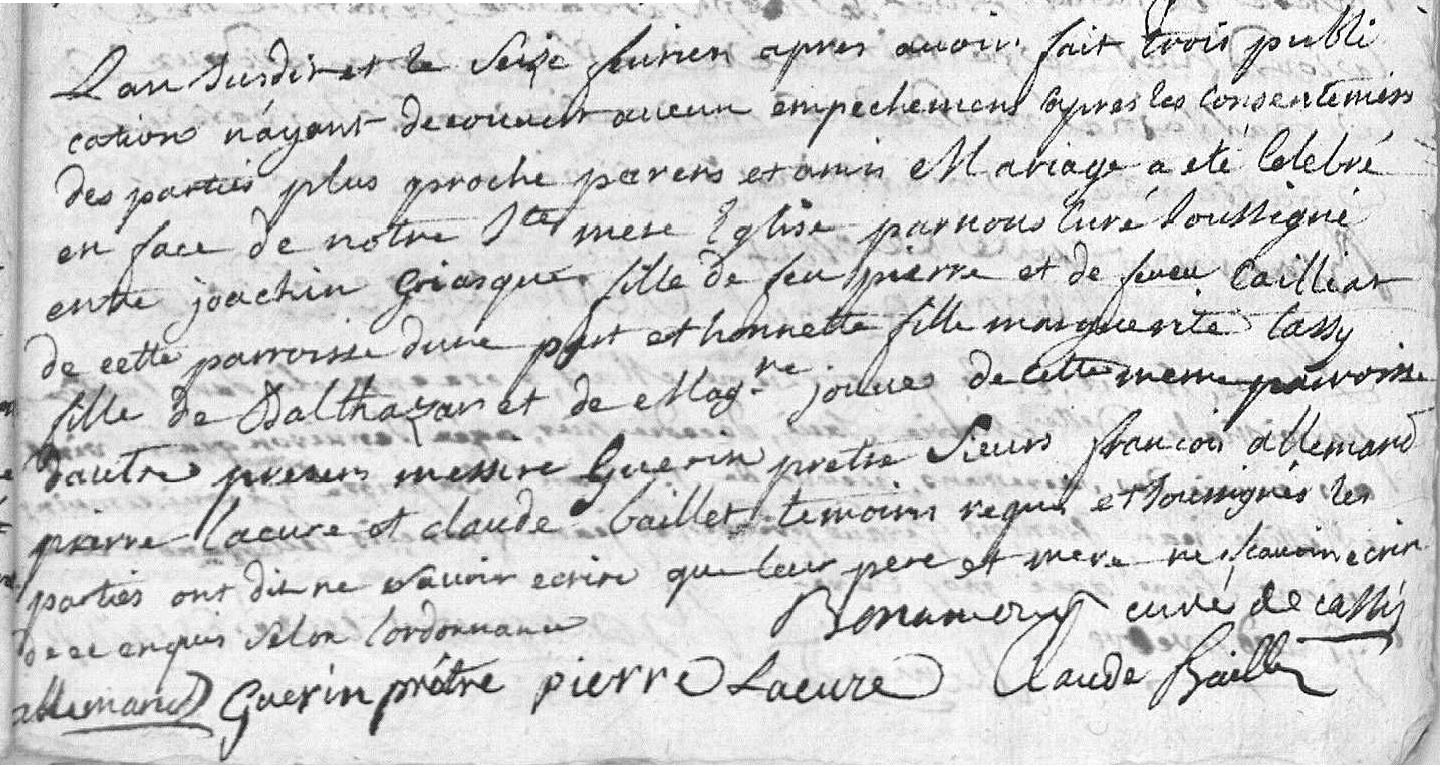 L an susdit et le seize fevrier apres avoir fait trois publi
cations n'ayant decouvert aucun empechement apres les consentemens
des parties plus proche parens et amis Mariage a eté Celebré
en face de notre Ste mere Eglise par nous Curé soussigné
entre joachin fille de feu pierre et de feue Cailliat
de cette parroisse dune part et honnette fille marguerite Cassy
fille de Balthazar et de Magne joune de Cette meme parroisse
dautre presens messire Guerin pretre sieurs francois allemand
pierre lacure et claude baillet temoins requis et soussignés les
parties ont dit ne savoir ecrire que leur pere et mere ne scavoir ecrire
de ce enquis selon lordonnance Bonamour curé de cassis
allemand Guerin prêtre pierre Lacure Claude Baille